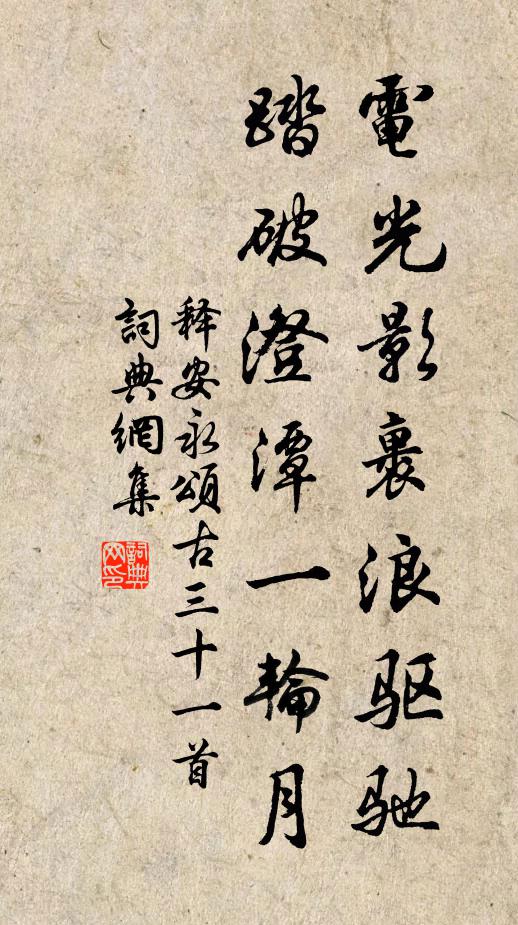 電光影裹浪驱驰
踏破澄潭一輪月
释安永頌古三十一首
詞典網集
詞典網印